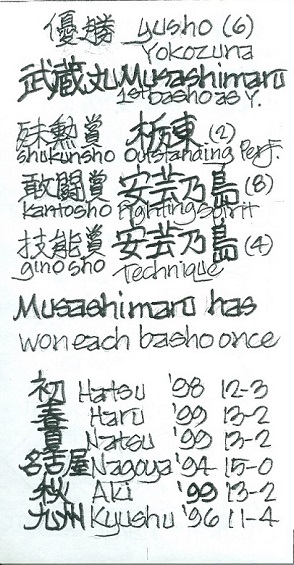 優勝 yusho (6)
Yokozuna
武蔵丸 Musashimaru
1st basho as Y.
殊勲賞 栃東 (2)
shukunsho Outstanding Perf.
敢闘賞 安芸乃島 (8)
kantosho Fighting Spirit
技能賞 安芸乃島 (4)
ginosho Technique
Musashimaru has
won each basho once
初 Hatsu '98 12-3
春 Haru '99 13-2
夏 Natsu '99 13-2
名古屋 Nagoya '94 15-0
秋 Aki '99 13-2
九州 Kyushu '96 11-4